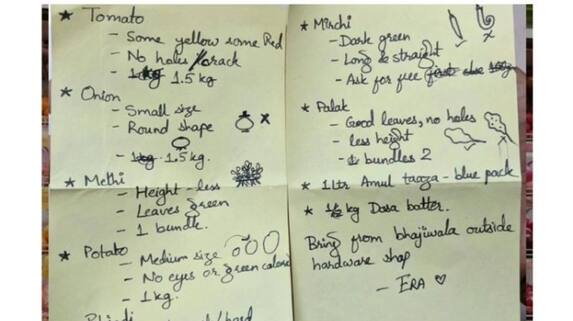 * Tomato
- Some yellow some Red
- No holes /crack
- 1.5 kg
* Onion
- Small size
- Round shape
x
- 1.5 kg.
* Methi
- Height - less
- Leaves green
- 1 bundle.
* Potato
- Medium size
- No eyes or green calori
- 1 kg.
* Mirchi
- Dark green
x
- Long & straight
- Ask for free
* Palak
- Good leaves, no holes
- less height
- bundles 2
* 1 Ltr Amul taaza - blue pack
* kg Dosa batter.
Bring from bhajiwala outside
hardware shop
- ERA ♡